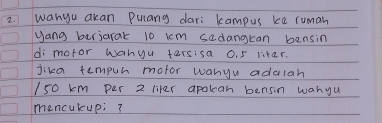 2. wahyu akan Pulang dari kampus ke rumah
yang berjarak 10 km sedangkan bensin
di motor wahyu tersisa 0.5 liter.
Jika tempuh motor wahyu adalah
150 km per 2 liter apakah bensin wahyu
mencukupi ?